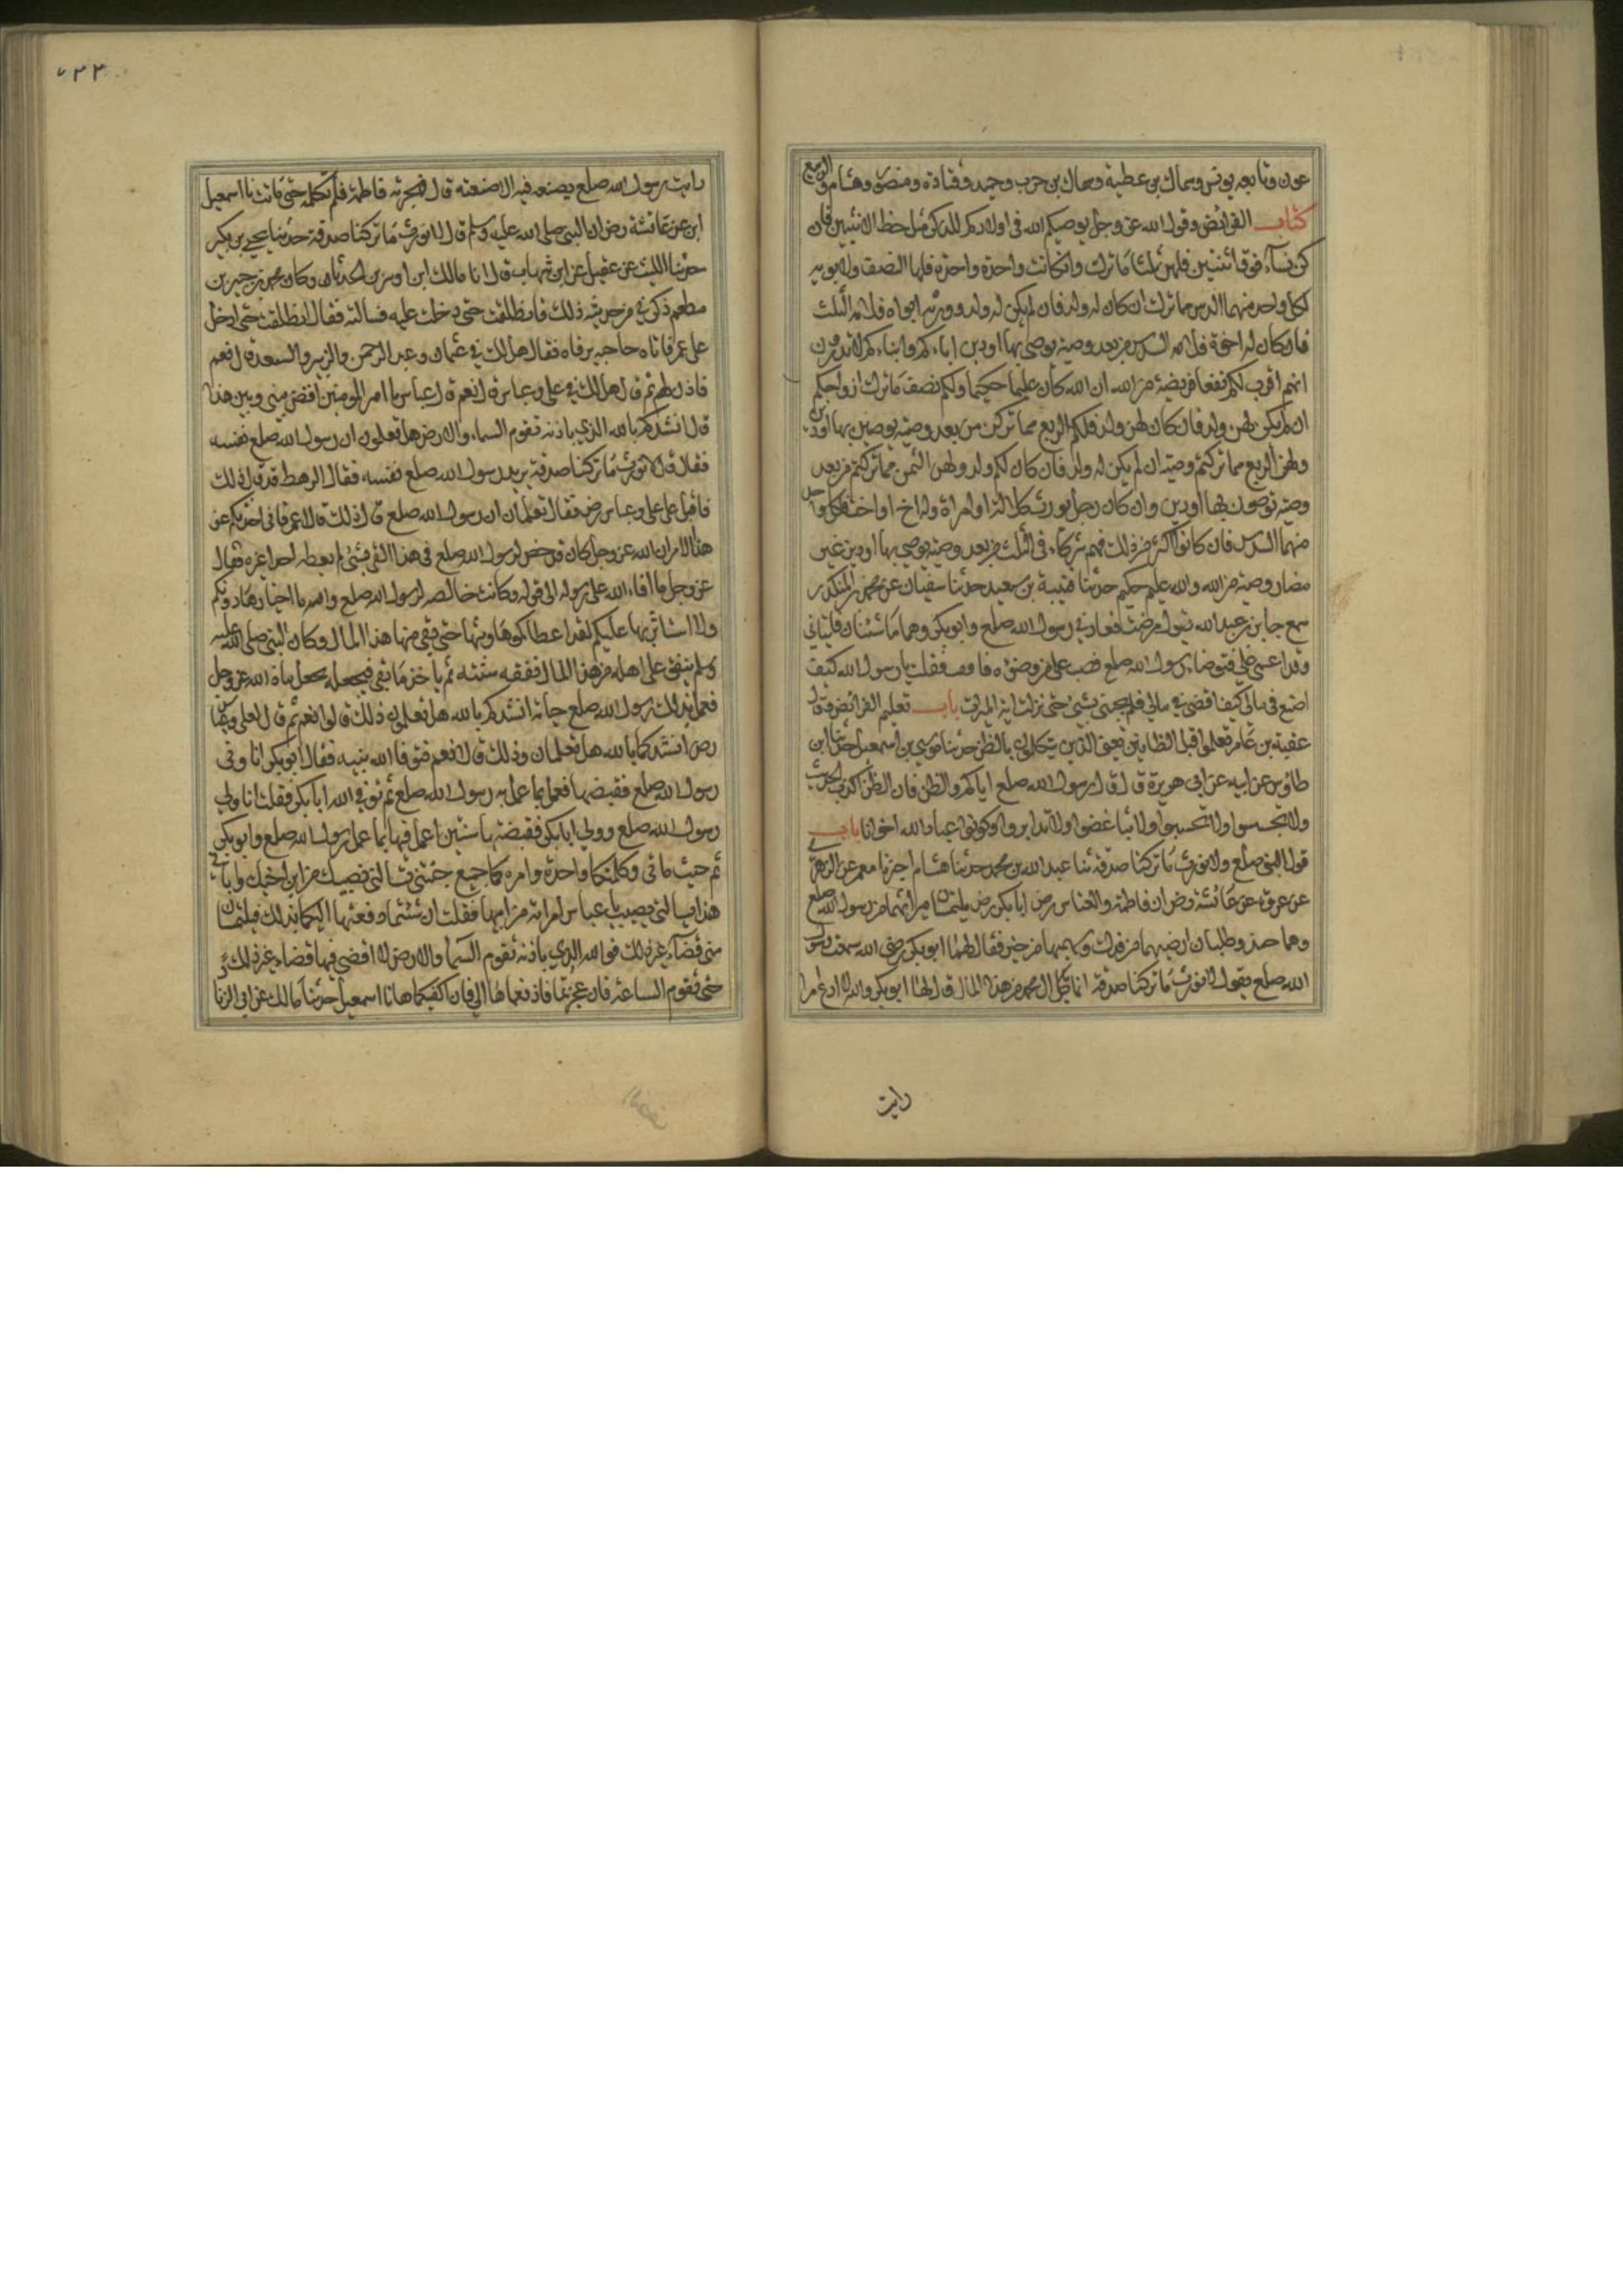 عون وتابعه يونس وسماك بن عطية وسماك بن حرب وحميد وقتادة ومنصور وهشام والربيع
كتاب الفرائض وقول الله عز وجل يوصيكم الله في اولادكم للذكر مثل حظ الانثيين فان
كن نساء فوق اثنتين فلهن ثلثا ما ترك وان كانت واحدة واحدة فلها النصف ولابويه
لكل واحد منهما السدس مما ترك ان كان له ولد فان لم يكن له ولد وورثه ابواه فلامه الثلث
فان كان له اخوة فلامه السدس من بعد وصية يوصي بها او دين اباءكم وابناءكم لا تدرون
ايهم اقرب لكم نفعا فريضة من الله ان الله كان عليما حكيما ولكم نصف ما ترك ازواجكم
ان لم يكن لهن ولد فان كان لهن ولد فلكم الربع مما تركن من بعد وصية يوصين بها او دين
ولهن الربع مما تركتم وصية ان لم يكن له ولد فان كان لكم ولد ولهن الثمن مما تركتم من بعد
وصية توصون بها او دين وان كان رجل يورث كلالة او امراة وله اخ او اخت فلكل واحد
منهما السدس فان كانوا اكثر من ذلك فهم شركاء في الثلث من بعد وصية يوصي بها او دين غير
مضار وصية من الله والله عليم حكيم حدثنا قتيبة بن سعيد حدثنا سفيان عن محمد بن المنكدر
سمع جابر بن عبد الله يقول مرضت فعادني رسول الله صلعم وابو بكر وهما ماشيان فاتياني
وقد اغمي علي فتوضاء رسول الله صلعم فصب علي من وضوءه فافقت فقلت يا رسول الله كيف
اصنع في مالي كيف اقضي في مالي فلم يجبني بشيء حتى نزلت اية الميراث باب تعليم الفرائض وقال
عقبة بن عامر تعلموا قبل الظانين يعني الذين يتكلمون بالظن حدثنا موسى بن اسمعيل حدثنا ابن
طاوس عن ابيه عن ابي هويرة قال قال رسول الله صلعم اياكم والظن فان الظن اكذب الحديث
ولا تجسسوا ولا تحسسوا ولا تباغضوا ولا تدابروا وكونوا عباد الله اخوانا باب
قول النبي صلعم ولا نورث ما تركنا صدقة ثنا عبد الله بن محمد حدثنا هشام اخبرنا معمر عن الزهري
عن عروة عن عائشة رض ان فاطمة والعباس رض ابا بكر رض يلتمسان ميراثهما من رسول الله صلعم
وهما حينئذ وطلبان ارضيهما من فدك وسهمهما من خيبر فقال لهما ابو بكر رضي الله سمعت رسول
الله صلعم يقول لا نورث ما تركنا صدقة انما ياكل ال محمد من هذا المال قال لهما ابو بكر والله لا ادع امرا
رايت
٧٢٣
رايت رسول الله صلعم يصنعه فيه الا صنعته قال فهجرته فاطمة فلم تكلمه حتى ماتت نا اسمعيل
ابن عن عائشة رض ان النبي صلى الله عليه وسلم قال لا نورث ما تركنا صدقة حدثنا يحيى بن بكير
حدثنا الليث عن عقيل عن ابن شهاب قال انا مالك ابن اوس بن الحدثان وكان محمد بن جبير بن
مطعم ذكر لي من حديثه ذلك فانطلقت حتى دخلت عليه فسالته فقال انطلقت حتى ادخل
على عمر فاتاه حاجبه يرفاه فقال هل لك في عثمان وعبد الرحمن والزبير والسعد قال نعم
فاذن لهم ثم قال هل لك في علي وعباس قال نعم قال عباس يا امير المومنين اقض بيني وبين هذا
قال انشدكم بالله الذي باذنه تقوم السماء والارض هل تعلمون ان رسول الله صلعم نفسه
فقال قال لا نورث ما تركنا صدقة يريد رسول الله صلعم نفسه فقال الرهط قد قال ذلك
فاقبل على علي وعباس رض فقال تعلمان ان رسول الله صلعم قال ذلك قالا عمر فاني احدثكم عن
هذا الامر ان الله عز وجل كان قد خص لرسول الله صلعم في هذا الفيء بشيء لم يعطه احدا غيره فقال
عز وجل ما افاء الله على رسوله الى قوله وكانت خالصه لرسول الله صلعم والله ما احتازها دونكم
ولا استاثر بها عليكم لقد اعطاكموها وبثها حتى بقي منها هذا المال وكان النبي صلى الله عليه
وسلم ينفق على اهله من هذا المال نفقة سنته ثم ياخذ ما بقي فيجعله مجعل مال الله عز وجل
فعمل بذلك رسول الله صلعم حياته انشدكم بالله هل تعلمون ذلك قالوا نعم ثم قال لعلي وعباس
رض انشدكما بالله هل تعلمان وذلك قال نعم فتوفا الله نبيه فقال ابو بكر انا ولي
رسول الله صلعم فقبضها فعمل بما عمل به رسول الله صلعم ثم توفي الله ابا بكر فقلت انا ولي
رسول الله صلعم وولي ابا بكر فقبضتها سنتين اعمل فيها بما عمل رسول الله صلعم وابو بكر
ثم جيتماني وكلمتكما واحدة وامركما جميع جئتني تسالني نصيبك من ابن اخيك واتاني
هذا يسالني نصيب عباس امراته من ابيها فقلت ان شئتما دفعتها اليكما بذلك فتلتمسان
مني قضاء غير ذلك فوالله الذي باذنه تقوم السماء والارض لا اقضي فيها قضاء غير ذلك
حتى تقوم الساعة فان عجزتما فادفعاها الي فانا اكفيكماها نا اسمعيل حدثنا مالك عن ابي الزنا